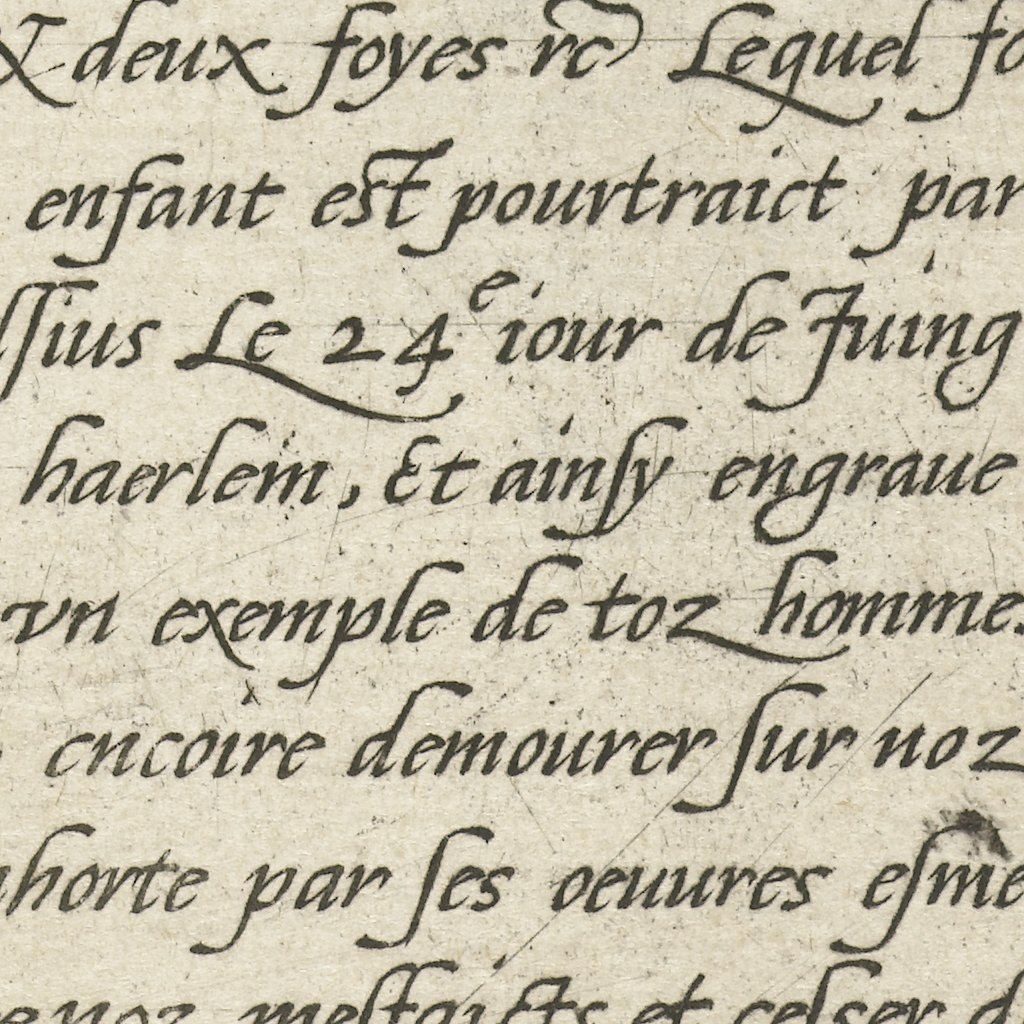 & deux foyes rc̃ Lequel fo
enfant est pourtraict par
ſſius Le 24e iour de Juing
haerlem, Et ainſy engraue
vn exemple de toz hommes
encoire demourer ſur noz
horte par ſes oeuures eſme
noz meſfaicts et ceſser d